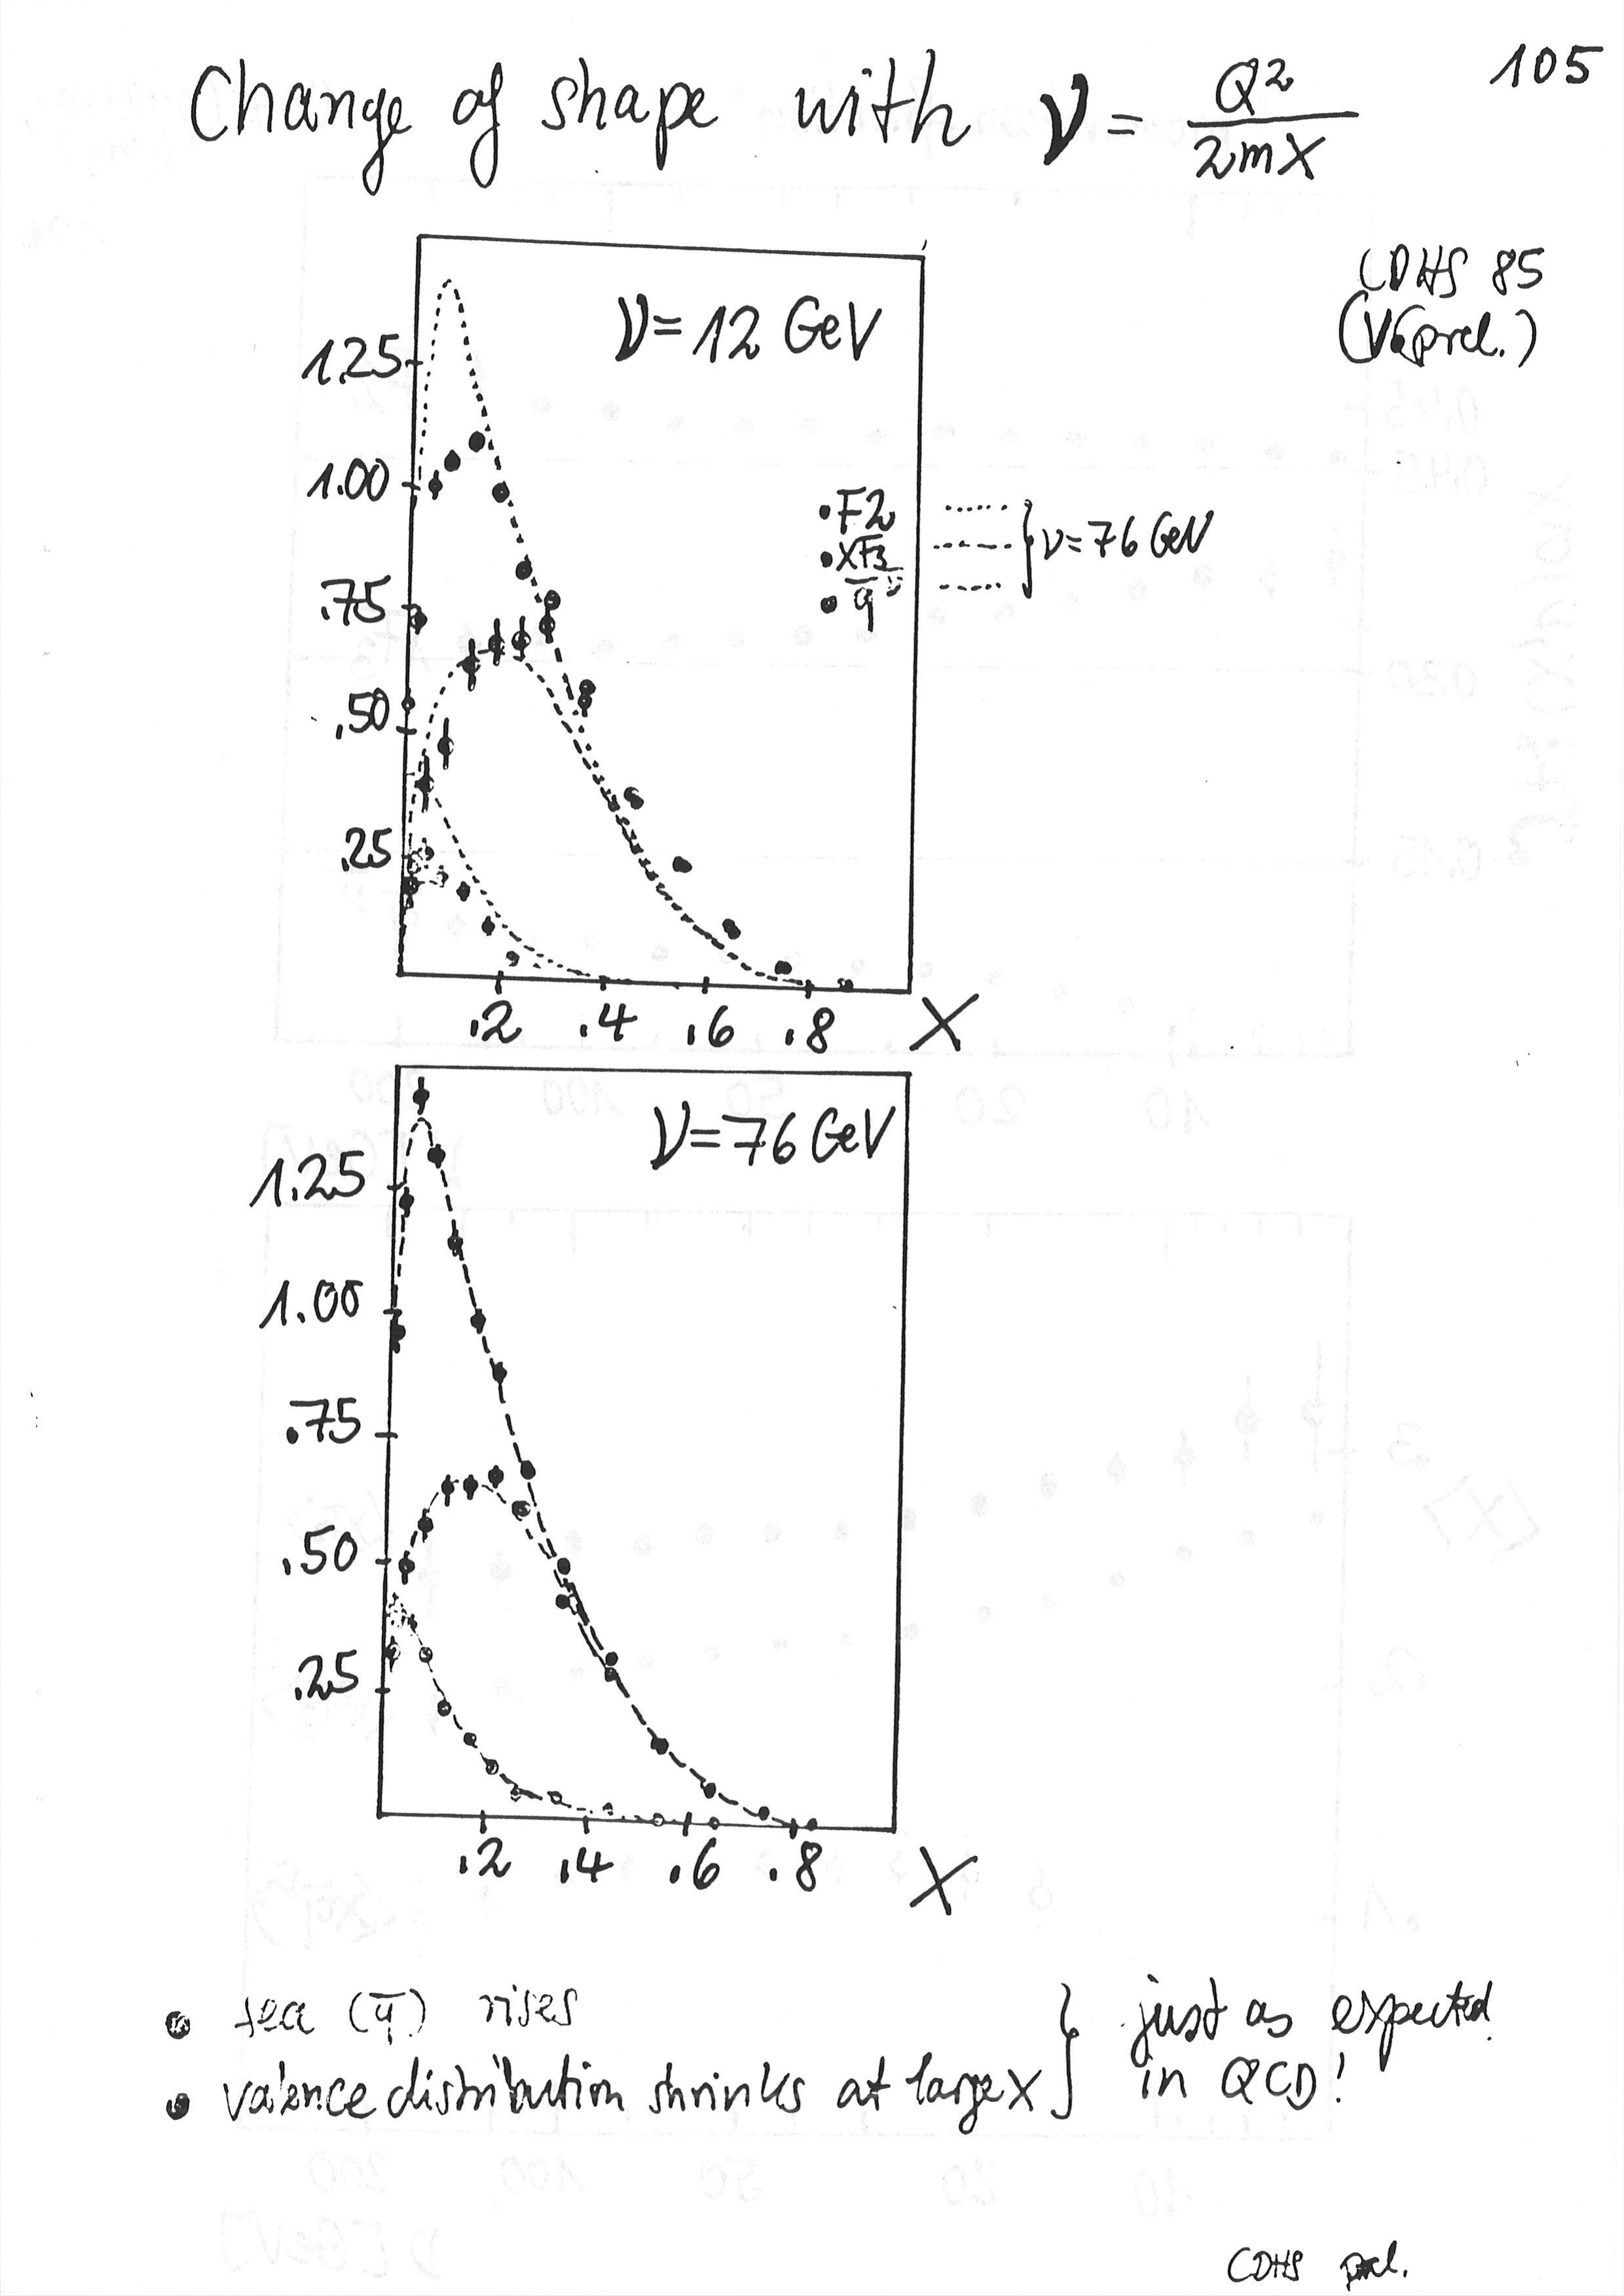 105
Change of shape with ν = Q²/2mX
CDHS 85
ν=12 GeV
1.25
1.00
.75
.50
.25
•F2
•XF3
• q̄
} ν=76 GeV
.2 .4 .6 .8 X
ν=76 GeV
1.25
1.00
.75
.50
.25
.2 .4 .6 .8 X
• sea (q̄) rises
• valence distribution shrinks at large X
} just as expected
in QCD!
CDHS prel.